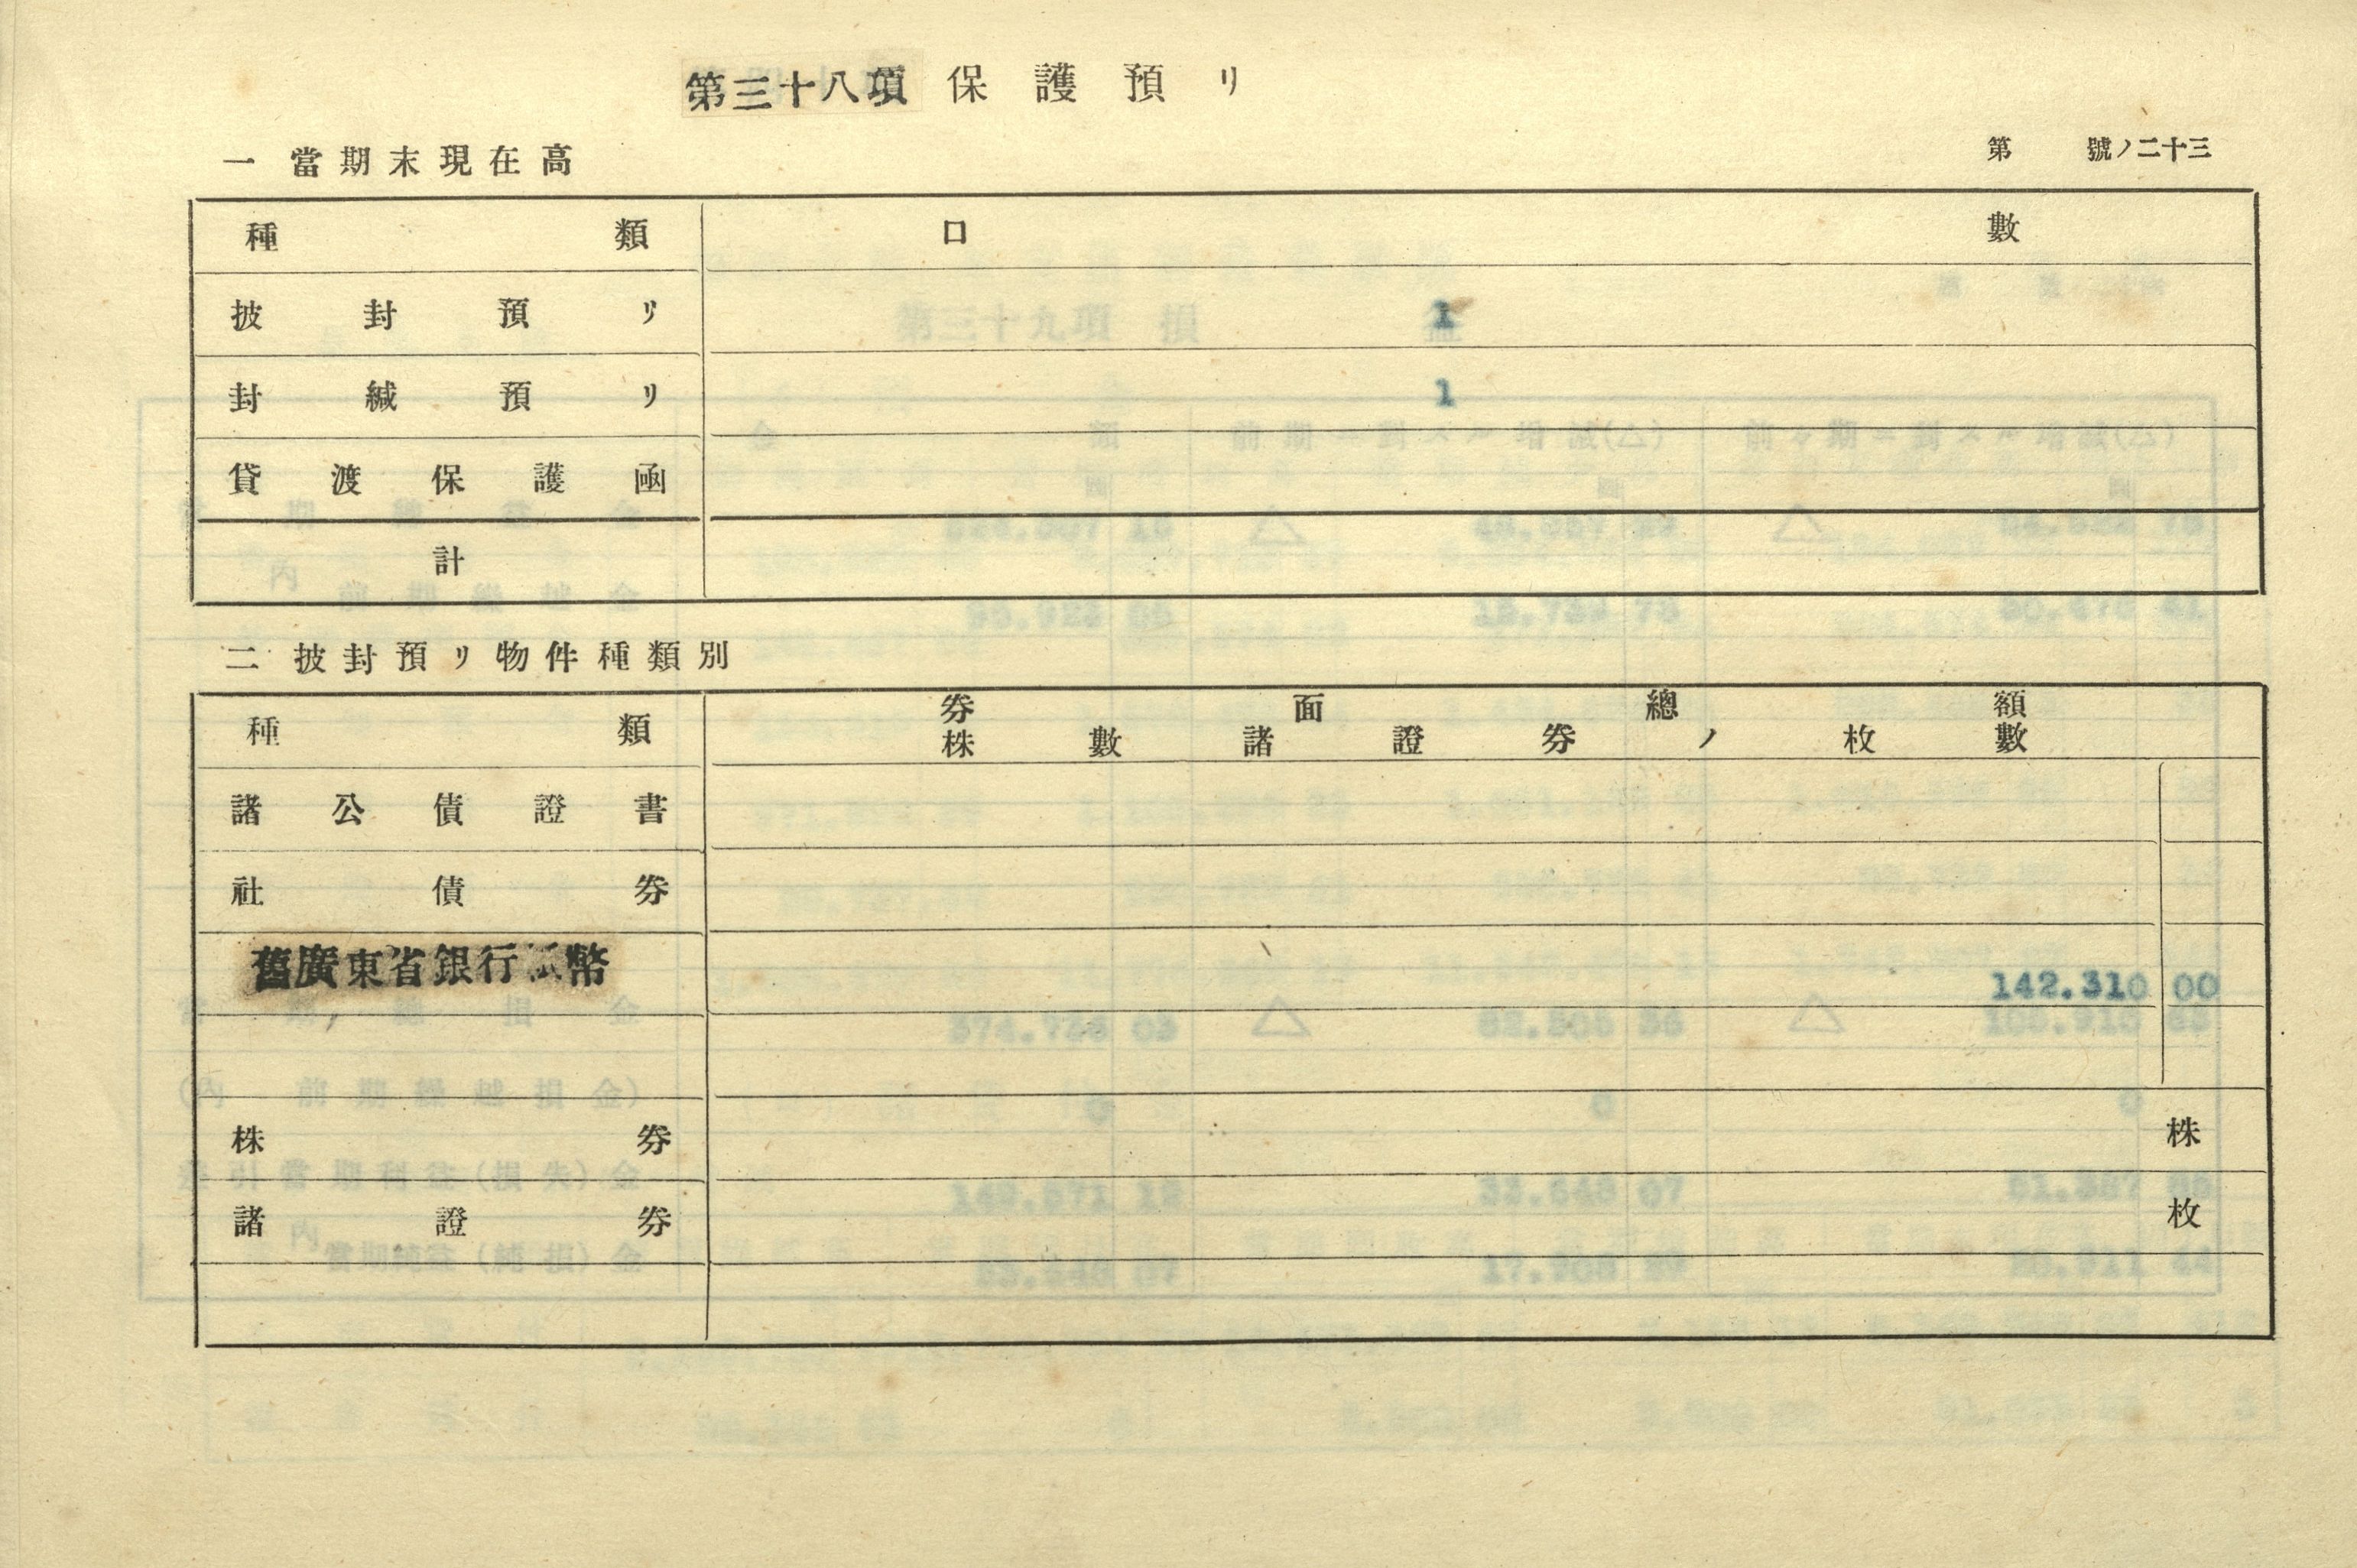 第三十八項 保護預リ
第 號ノ二十三
一 當期末現在高
種類 口數
披封預リ 1
封緘預リ 1
貸渡保護凾
計
二 披封預リ物件種類別
種類 券面總額
株數諸證券ノ枚數
諸公債證書
社債券
舊廣東省銀行紙幣 142.310 00
株券 株
諸證券 枚